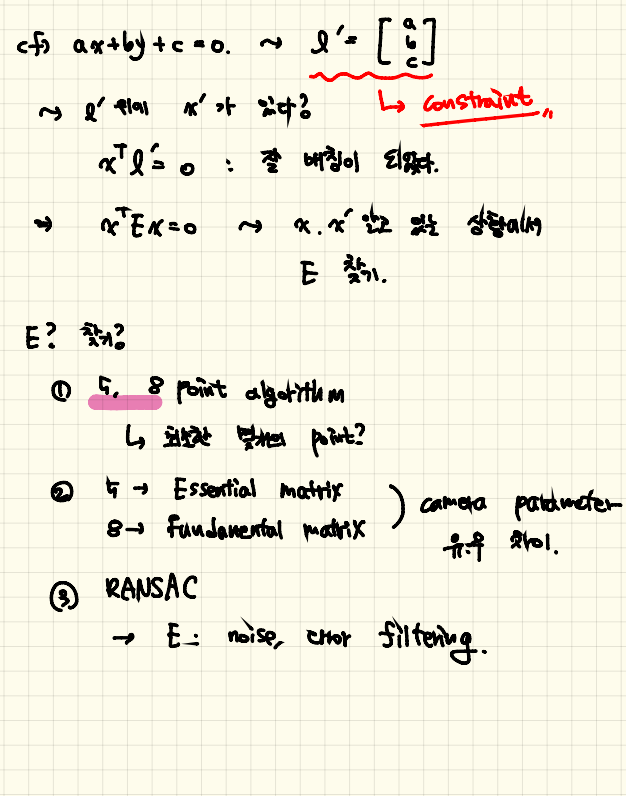 cf) ax+by+c=0. ~ l' = [a b c]
↳ constraint
~ l' 위에 x' 가 있다?
x^T l' = 0 : 잘 매칭이 되었다.
⇒ x^T E x = 0 ~ x. x' 알고 있는 상황에서
E 찾기.
E? 찾기?
① 5, 8 point algorithm
↳ 최소한 몇개의 point?
② 5 → Essential matrix
8 → fundamental matrix
) camera parameter
유무 차이.
③ RANSAC
→ E : noise, error filtering.